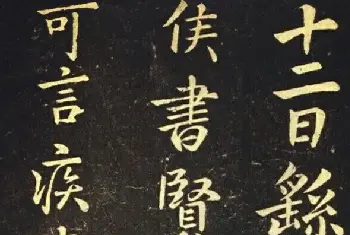 十二日繇
侯書賢
可言疾